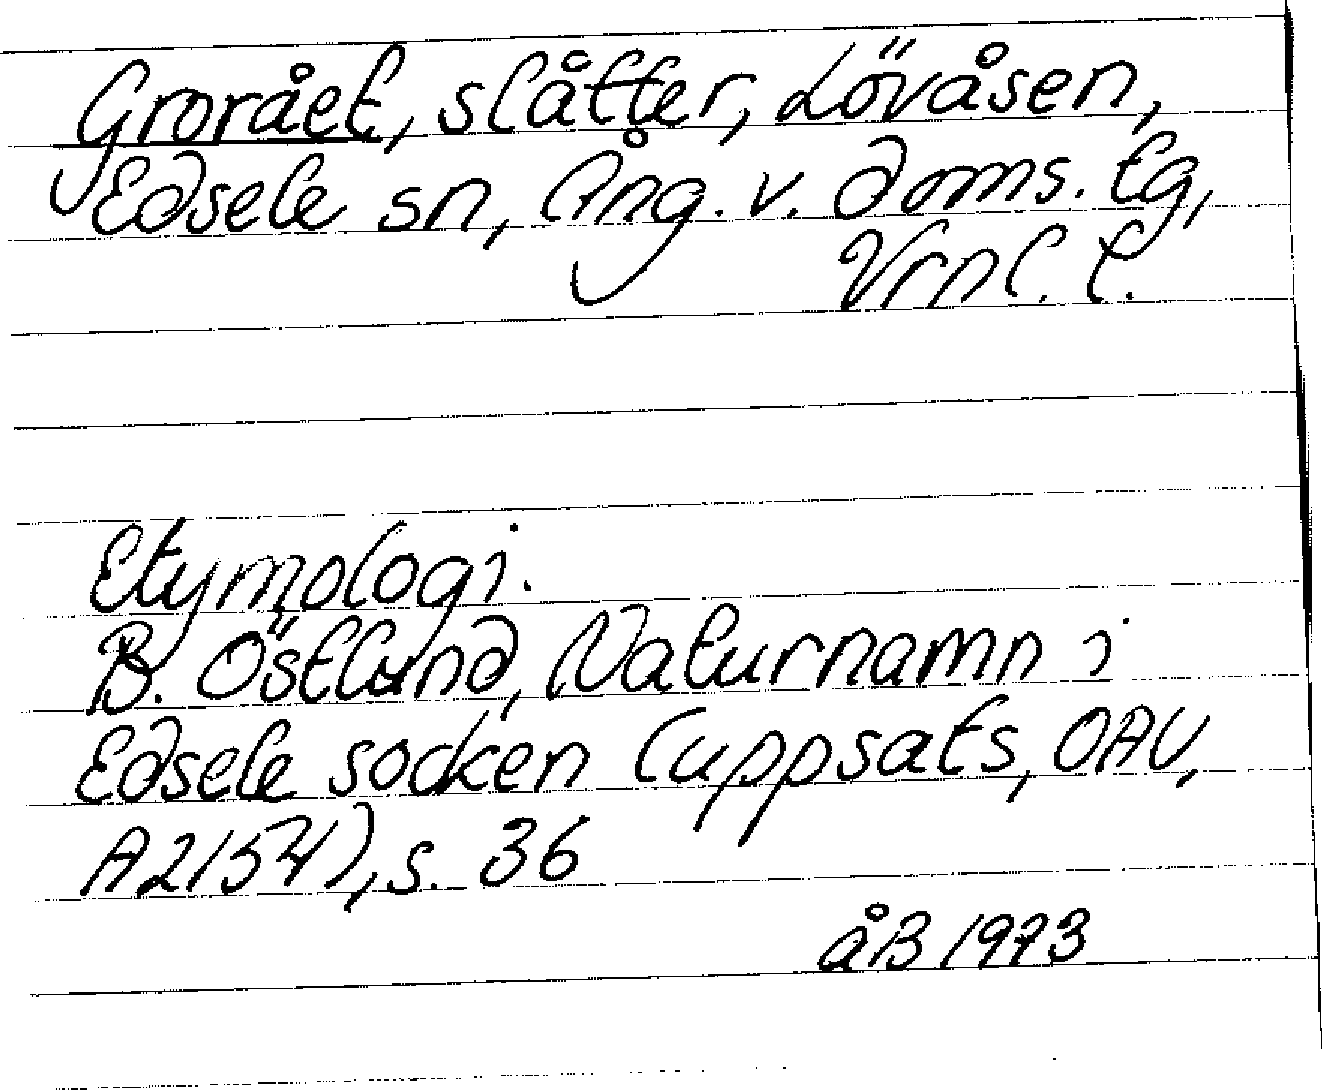 Grorået, slåtter, Lövåsen,
Edsele sn, Ång. v. doms. tg,
Vrnl. l.
Etymologi.
B. Östlund, Naturnamn i
Edsele socken (uppsats, OAU,
A2154), s. 36
åB 1973